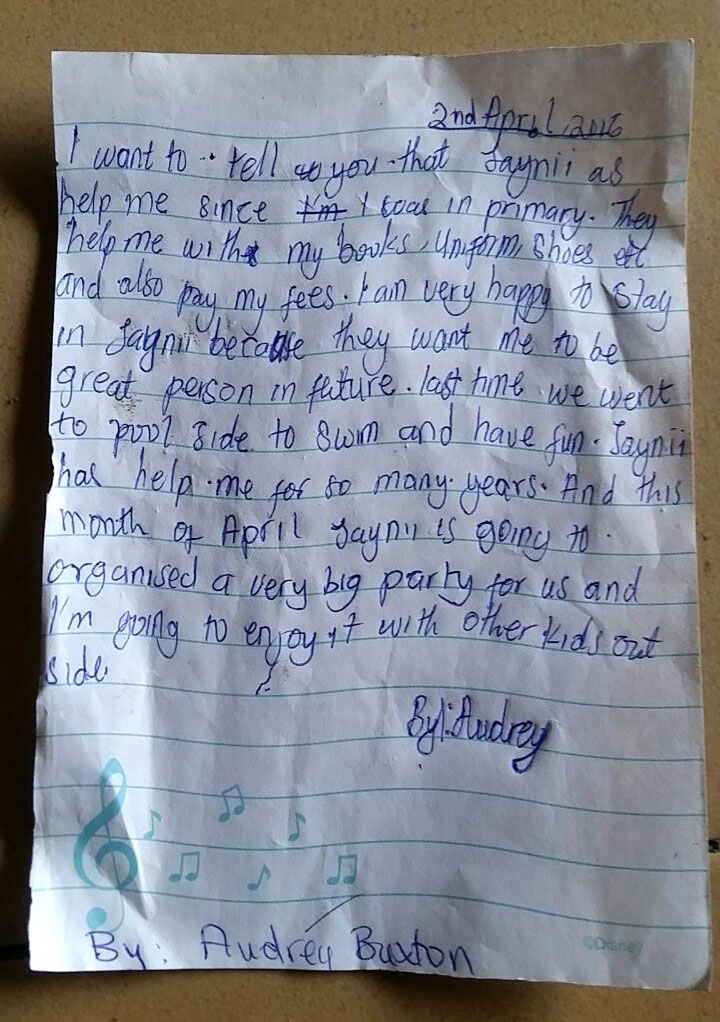 2nd April 2016
I want to tell you that Jaynii as
help me since I'm I was in primary. They
help me with my books, Uniform, Shoes etc
and also pay my fees. I am very happy to stay
in Jaynii because they want me to be
great person in future. last time we went
to pool side to swim and have fun. Jaynii
has help me for so many years. And this
month of April Jaynii is going to
organised a very big party for us and
I'm going to enjoy it with other kids out
side.
By: Audrey
By: Audrey Buxton
©Disney